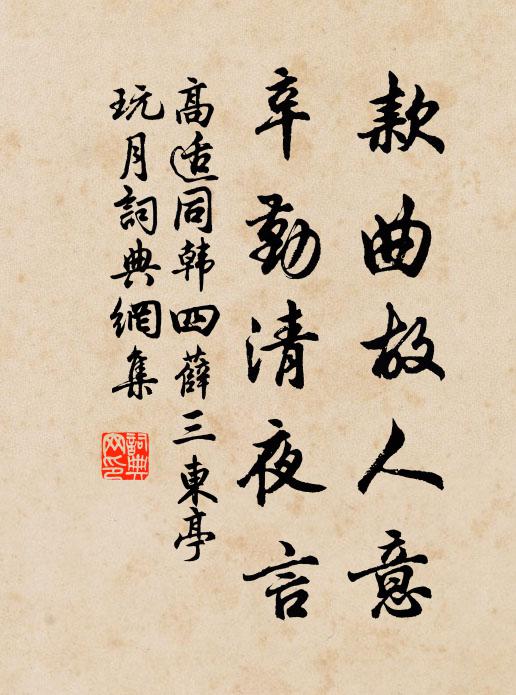 款曲故人意
辛勤清夜言
高适同韩四薛三東亭
玩月詞典網集
詞典网印